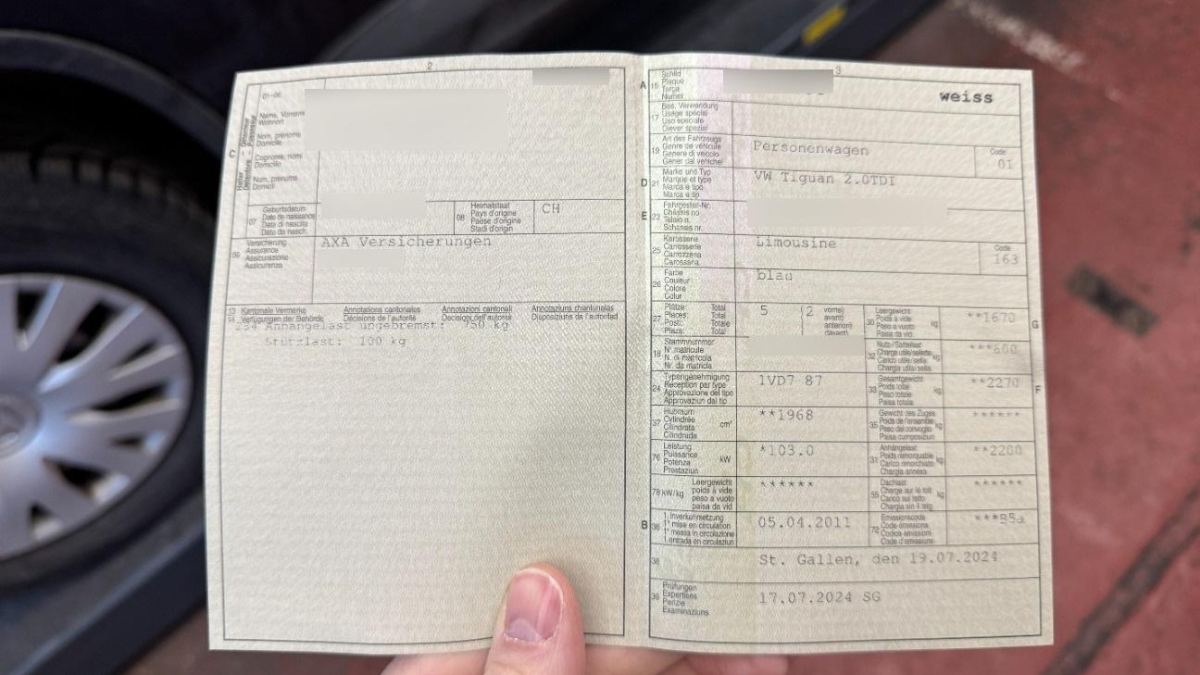 2
01-06
C
Halter
Name, Vorname
Wohnort
Nom, prénom
Domicile
Cognome, nom
Domicilio
Num, prenums
Domicil
07
Geburtsdatum
Date de naissance
Data di nascita
Data da nasch.
08
Heimatstaat
Pays d'origine
Paese d'origine
Stadi d'origin
CH
09
Versicherung
Assurance
Assicurazione
Assicuranza
AXA Versicherungen
13
14
Kantonale Vermerke
Verfügungen der Behörde
Annotations cantonales
Décisions de l'autorité
Annotazioni cantonali
Decisioni dell'autorità
Annotaziuns chantunalas
Disposiziuns de l'autoritad
234 Anhängelast ungebremst: 750 kg
Stützlast: 100 kg
3
A
15
Schild
Plaque
Targa
Numer
weiss
17
Bes. Verwendung
Usage spécial
Uso speciale
Diever spezial
19
Art des Fahrzeugs
Genre de véhicule
Genere di veicolo
Gener dal vehichel
Personenwagen
Code
01
D
21
Marke und Typ
Marque et type
Marca e tipo
Marca e tip
VW Tiguan 2.0TDI
E
23
Fahrgestell-Nr.
Châssis no
Telaio n.
Schassis nr.
25
Karosserie
Carrosserie
Carrozzeria
Carossaria
Limousine
Code
163
26
Farbe
Couleur
Colore
Colur
blau
27
Plätze: Total
Places: Total
Posti: Totale
Plazs: Total
5
2
vorne
avant
anteriori
davant
30
Leergewicht
Poids à vide
Peso a vuoto
Paisa da vid
kg
**1670
G
18
Stammnummer
N° matricule
N. di matricola
Nr. da matricla
32
Nutz-/Sattellast
Charge utile/sellette
Carico utile/sella
Chargia utila/sella
kg
***600
24
Typengenehmigung
Réception par type
Approvazione del tipo
Approvaziun dal tip
1VD7 87
33
Gesamtgewicht
Poids total
Peso totale
Paisa totala
kg
**2270
F
37
Hubraum
Cylindrée
Cilindrata
Cilindrada
cm³
**1968
35
Gewicht des Zuges
Poids de l'ensemble
Peso del convoglio
Paisa cumposiziun
kg
******
76
Leistung
Puissance
Potenza
Prestaziun
kW
*103.0
31
Anhängelast
Poids remorquable
Carico rimorchiato
Chargia annexa
kg
**2200
78
kW/kg
Leergewicht
poids à vide
peso a vuoto
paisa da vid
******
55
Dachlast
Charge sur le toit
Carico sul tetto
Chargia sin il tetg
kg
******
B
36
1. Inverkehrsetzung
1re mise en circulation
1a messa in circolazione
1. entrada en circulaziun
05.04.2011
72
Emissionscode
Code émissions
Codice emissioni
Code d'emissiuns
***B5a
38
St. Gallen, den 19.07.2024
39
Prüfungen
Expertises
Perizie
Examinaziuns
17.07.2024 SG